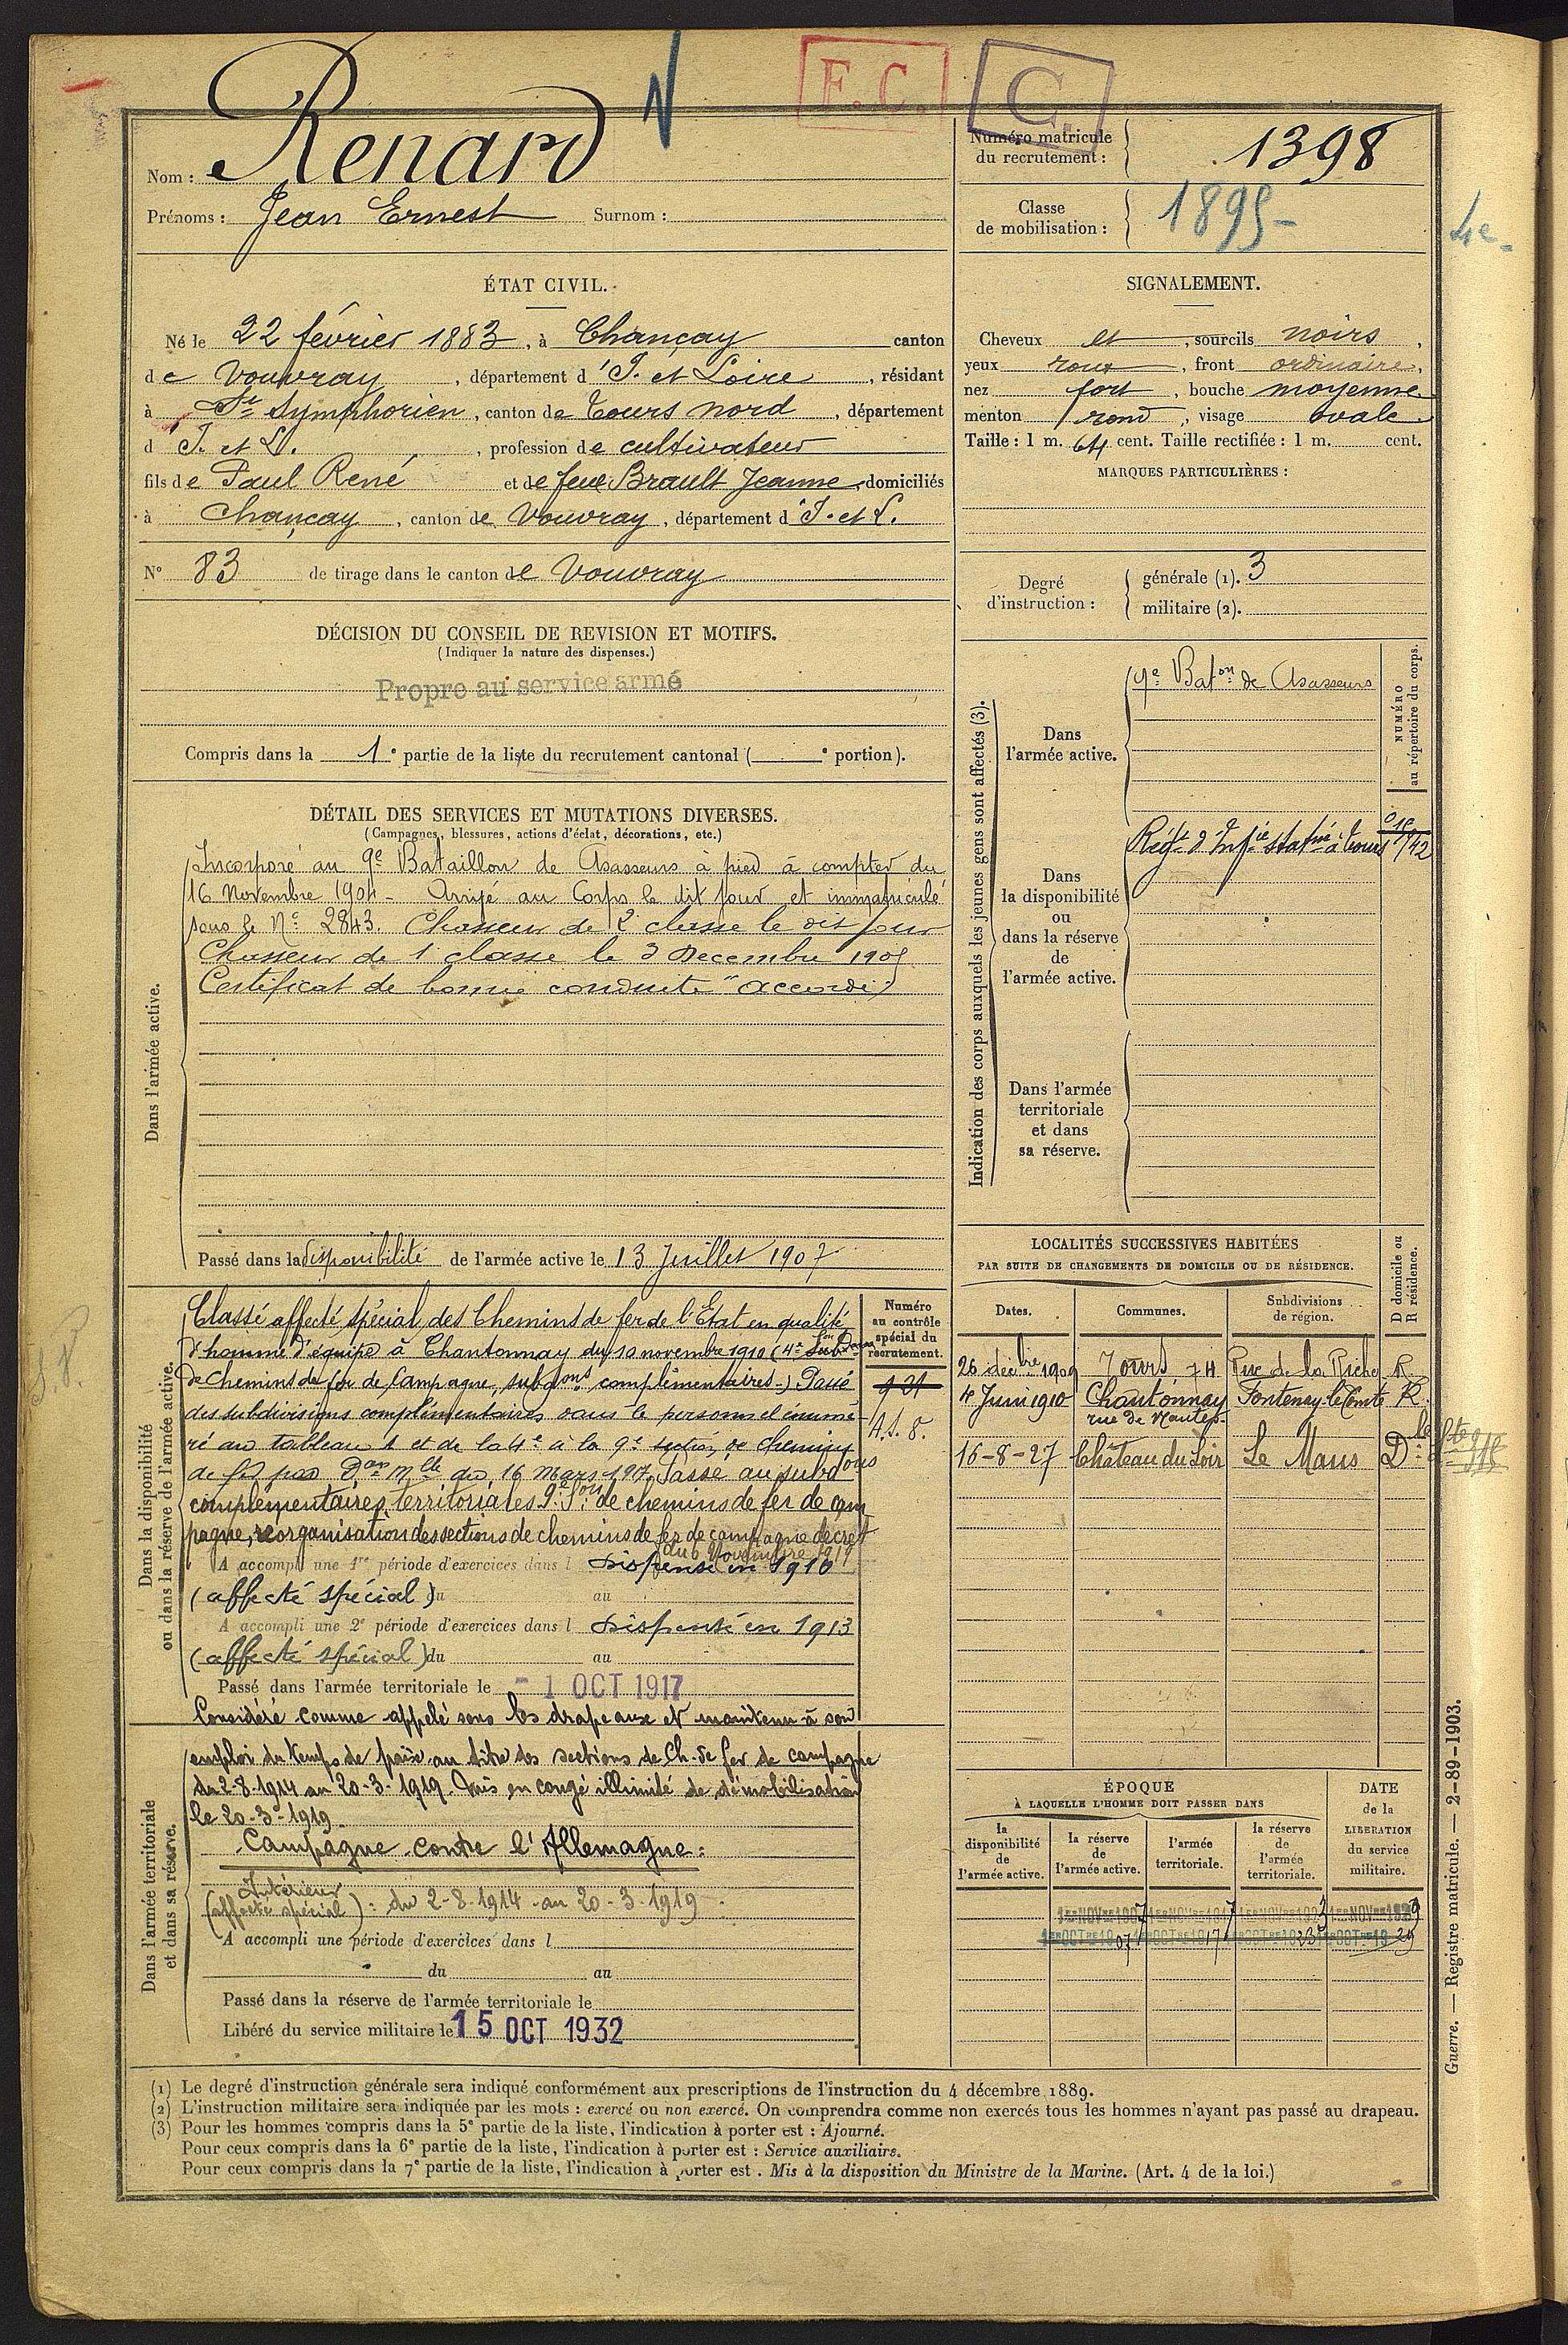 F. C.
C.
Nom : Renard
Prénoms : Jean Ernest Surnom :
Numéro matricule du recrutement : 1398
Classe de mobilisation : 1895
4e
ÉTAT CIVIL.
Né le 22 février 1883, à Chançay canton
de Vouvray, département d'I. et Loire, résidant
à St Symphorien, canton de Tours nord, département
d I. et L., profession de cultivateur
fils de Paul René et de feue Brault Jeanne, domiciliés
à Chançay, canton de Vouvray, département d'I. et L.
N° 83 de tirage dans le canton de Vouvray
SIGNALEMENT.
Cheveux et, sourcils noirs,
yeux roux, front ordinaire,
nez fort, bouche moyenne
menton rond, visage ovale
Taille : 1 m. 64 cent. Taille rectifiée : 1 m. cent.
MARQUES PARTICULIÈRES :
Degré d'instruction :
générale (1). 3
militaire (2).
DÉCISION DU CONSEIL DE REVISION ET MOTIFS.
(Indiquer la nature des dispenses.)
Propre au service armé
Compris dans la 1e partie de la liste du recrutement cantonal ( e portion).
DÉTAIL DES SERVICES ET MUTATIONS DIVERSES.
(Campagnes, blessures, actions d'éclat, décorations, etc.)
Dans l'armée active.
Incorporé au 9e Bataillon de Chasseurs à pied à compter du
16 Novembre 1904 - Arrivé au Corps le dit jour et immatriculé
sous le N° 2843. Chasseur de 2e classe le dit jour
Chasseur de 1e classe le 3 Decembre 1905
Certificat de bonne conduite "accordé"
Passé dans la disponibilité de l'armée active le 13 Juillet 1907
Indication des corps auxquels les jeunes gens sont affectés (3).
NUMÉRO au répertoire du corps.
Dans l'armée active.
9e Baton de Chasseurs
Dans la disponibilité ou dans la réserve de l'armée active.
Régt d'Infie statné à Tours
Dans l'armée territoriale et dans sa réserve.
Dans la disponibilité ou dans la réserve de l'armée active.
Classé affecté spécial des Chemins de fer de l'Etat en qualité
d'homme d'équipe à Chantonnay du 10 novembre 1910 (4e
de Chemins de fer de Campagne, subdons complémentaires-) Passé
des subdivisions complémentaires dans le personnel énumé-
ré au tableau 1 et de la 4e à la 9e section de chemins
de fer par Don Mlle du 16 mars 1917. Passé au subdons
complémentaires territoriales 9e Son de chemins de fer de cam
pagne, réorganisation des sections de chemins de fer de campagne décret
du 6 Novembre 1919
A accompli une 1re période d'exercices dans l Dispensé en 1910
(affecté spécial) du au
A accompli une 2e période d'exercices dans l Dispensé en 1913
(affecté spécial) du au
Passé dans l'armée territoriale le - 1 OCT 1917
Numéro au contrôle spécial du recrutement.
4. S. 8.
Dans l'armée territoriale et dans sa réserve.
Considéré comme appelé sous les drapeaux et maintenu à son
emploi du temps de paix au titre des sections de Ch. de fer de campagne
du 2-8-1914 au 20-3-1919. Mis en congé illimité de démobilisation
le 20-3-1919
Campagne contre l'Allemagne :
Intérieur
(affecté spécial) : du 2-8-1914 au 20-3-1919
A accompli une période d'exercices dans l
du au
Passé dans la réserve de l'armée territoriale le
Libéré du service militaire le 15 OCT 1932
LOCALITÉS SUCCESSIVES HABITÉES
PAR SUITE DE CHANGEMENTS DE DOMICILE OU DE RÉSIDENCE.
Dates. Communes. Subdivisions de région. D domicile ou R résidence.
26 décbre 1909 Tours 74 Rue de la Riche R
4 Juin 1910 Chantonnay Fontenay-le-Comte R.
rue de Nantes
16-8-27 Château du Loir Le Mans D
ÉPOQUE
À LAQUELLE L'HOMME DOIT PASSER DANS
la disponibilité de l'armée active. la réserve de l'armée active. l'armée territoriale. la réserve de l'armée territoriale. DATE de la LIBÉRATION du service militaire.
1er NOVbre 1907 1er NOVbre 1917 1er NOVbre 1923 1er NOVbre 1929
1er OCTbre 1907 1er OCTbre 1917 1er OCTbre 1923 1er OCTbre 1929
(1) Le degré d'instruction générale sera indiqué conformément aux prescriptions de l'instruction du 4 décembre 1889.
(2) L'instruction militaire sera indiquée par les mots : exercé ou non exercé. On comprendra comme non exercés tous les hommes n'ayant pas passé au drapeau.
(3) Pour les hommes compris dans la 5e partie de la liste, l'indication à porter est : Ajourné.
Pour ceux compris dans la 6e partie de la liste, l'indication à porter est : Service auxiliaire.
Pour ceux compris dans la 7e partie de la liste, l'indication à porter est . Mis à la disposition du Ministre de la Marine. (Art. 4 de la loi.)
Guerre. — Registre matricule. — 2-89-1903.